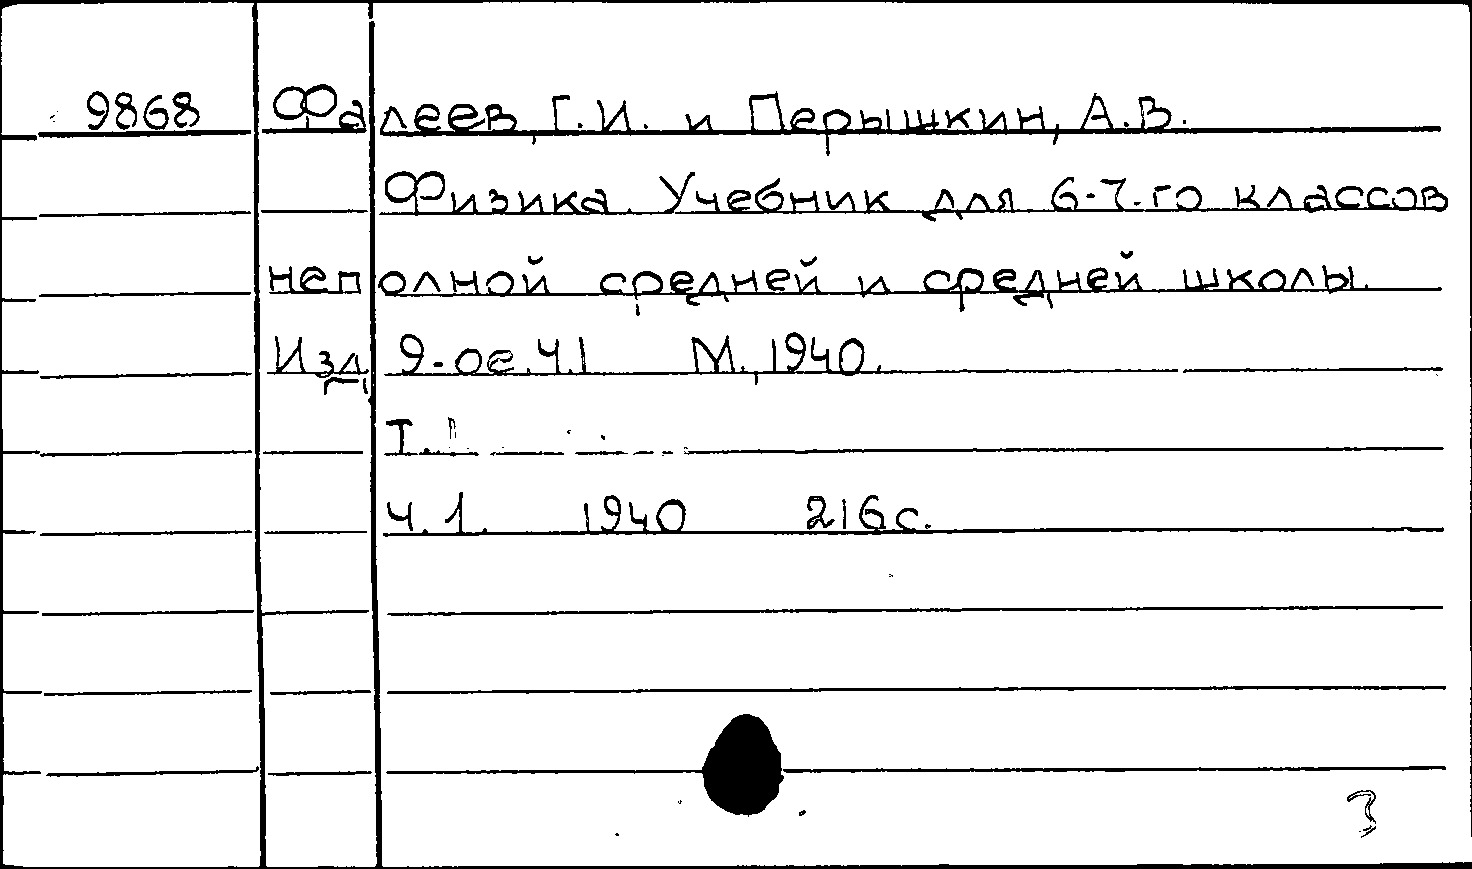 9868 Фалеев, Г.И. и Перышкин, А.В.
Физика. Учебник для 6-7-го классов
неполной средней и средней школы.
Изд. 9-ое. Ч.1 М., 1940.
Т.
Ч.1. 1940 216 с.
3